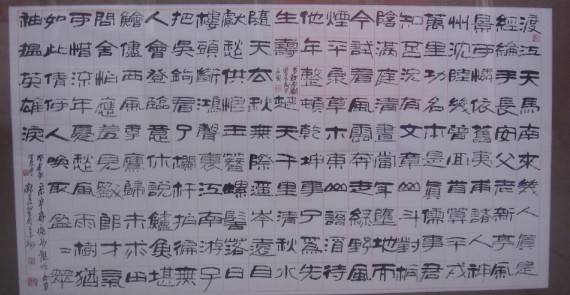 渡江天馬南來幾人真是
經綸手長安父老新亭風
景可憐依舊夷甫諸人神
州沈陸幾曾回首算平戎
萬里功名本是真儒事君
知否況有文章山斗對桐
陰滿庭清晝當年墮地而
今試看風雲奔走綠野風
煙平泉草木東山歌酒待
他年整頓乾坤事了為先
生壽
楚天千里清秋水
隨天去秋無際遥岑遠目
獻愁供恨玉簪螺髻落日
樓頭斷鴻聲裏江南游子
把吳鉤看了欄杆拍徧無
人會登臨意休說鱸魚堪
鱠儘西風季鷹歸未求田
問舍怕應羞見劉郎才氣
可惜流年憂愁風雨樹猶
如此倩何人喚取盈盈翠
袖搵英雄淚